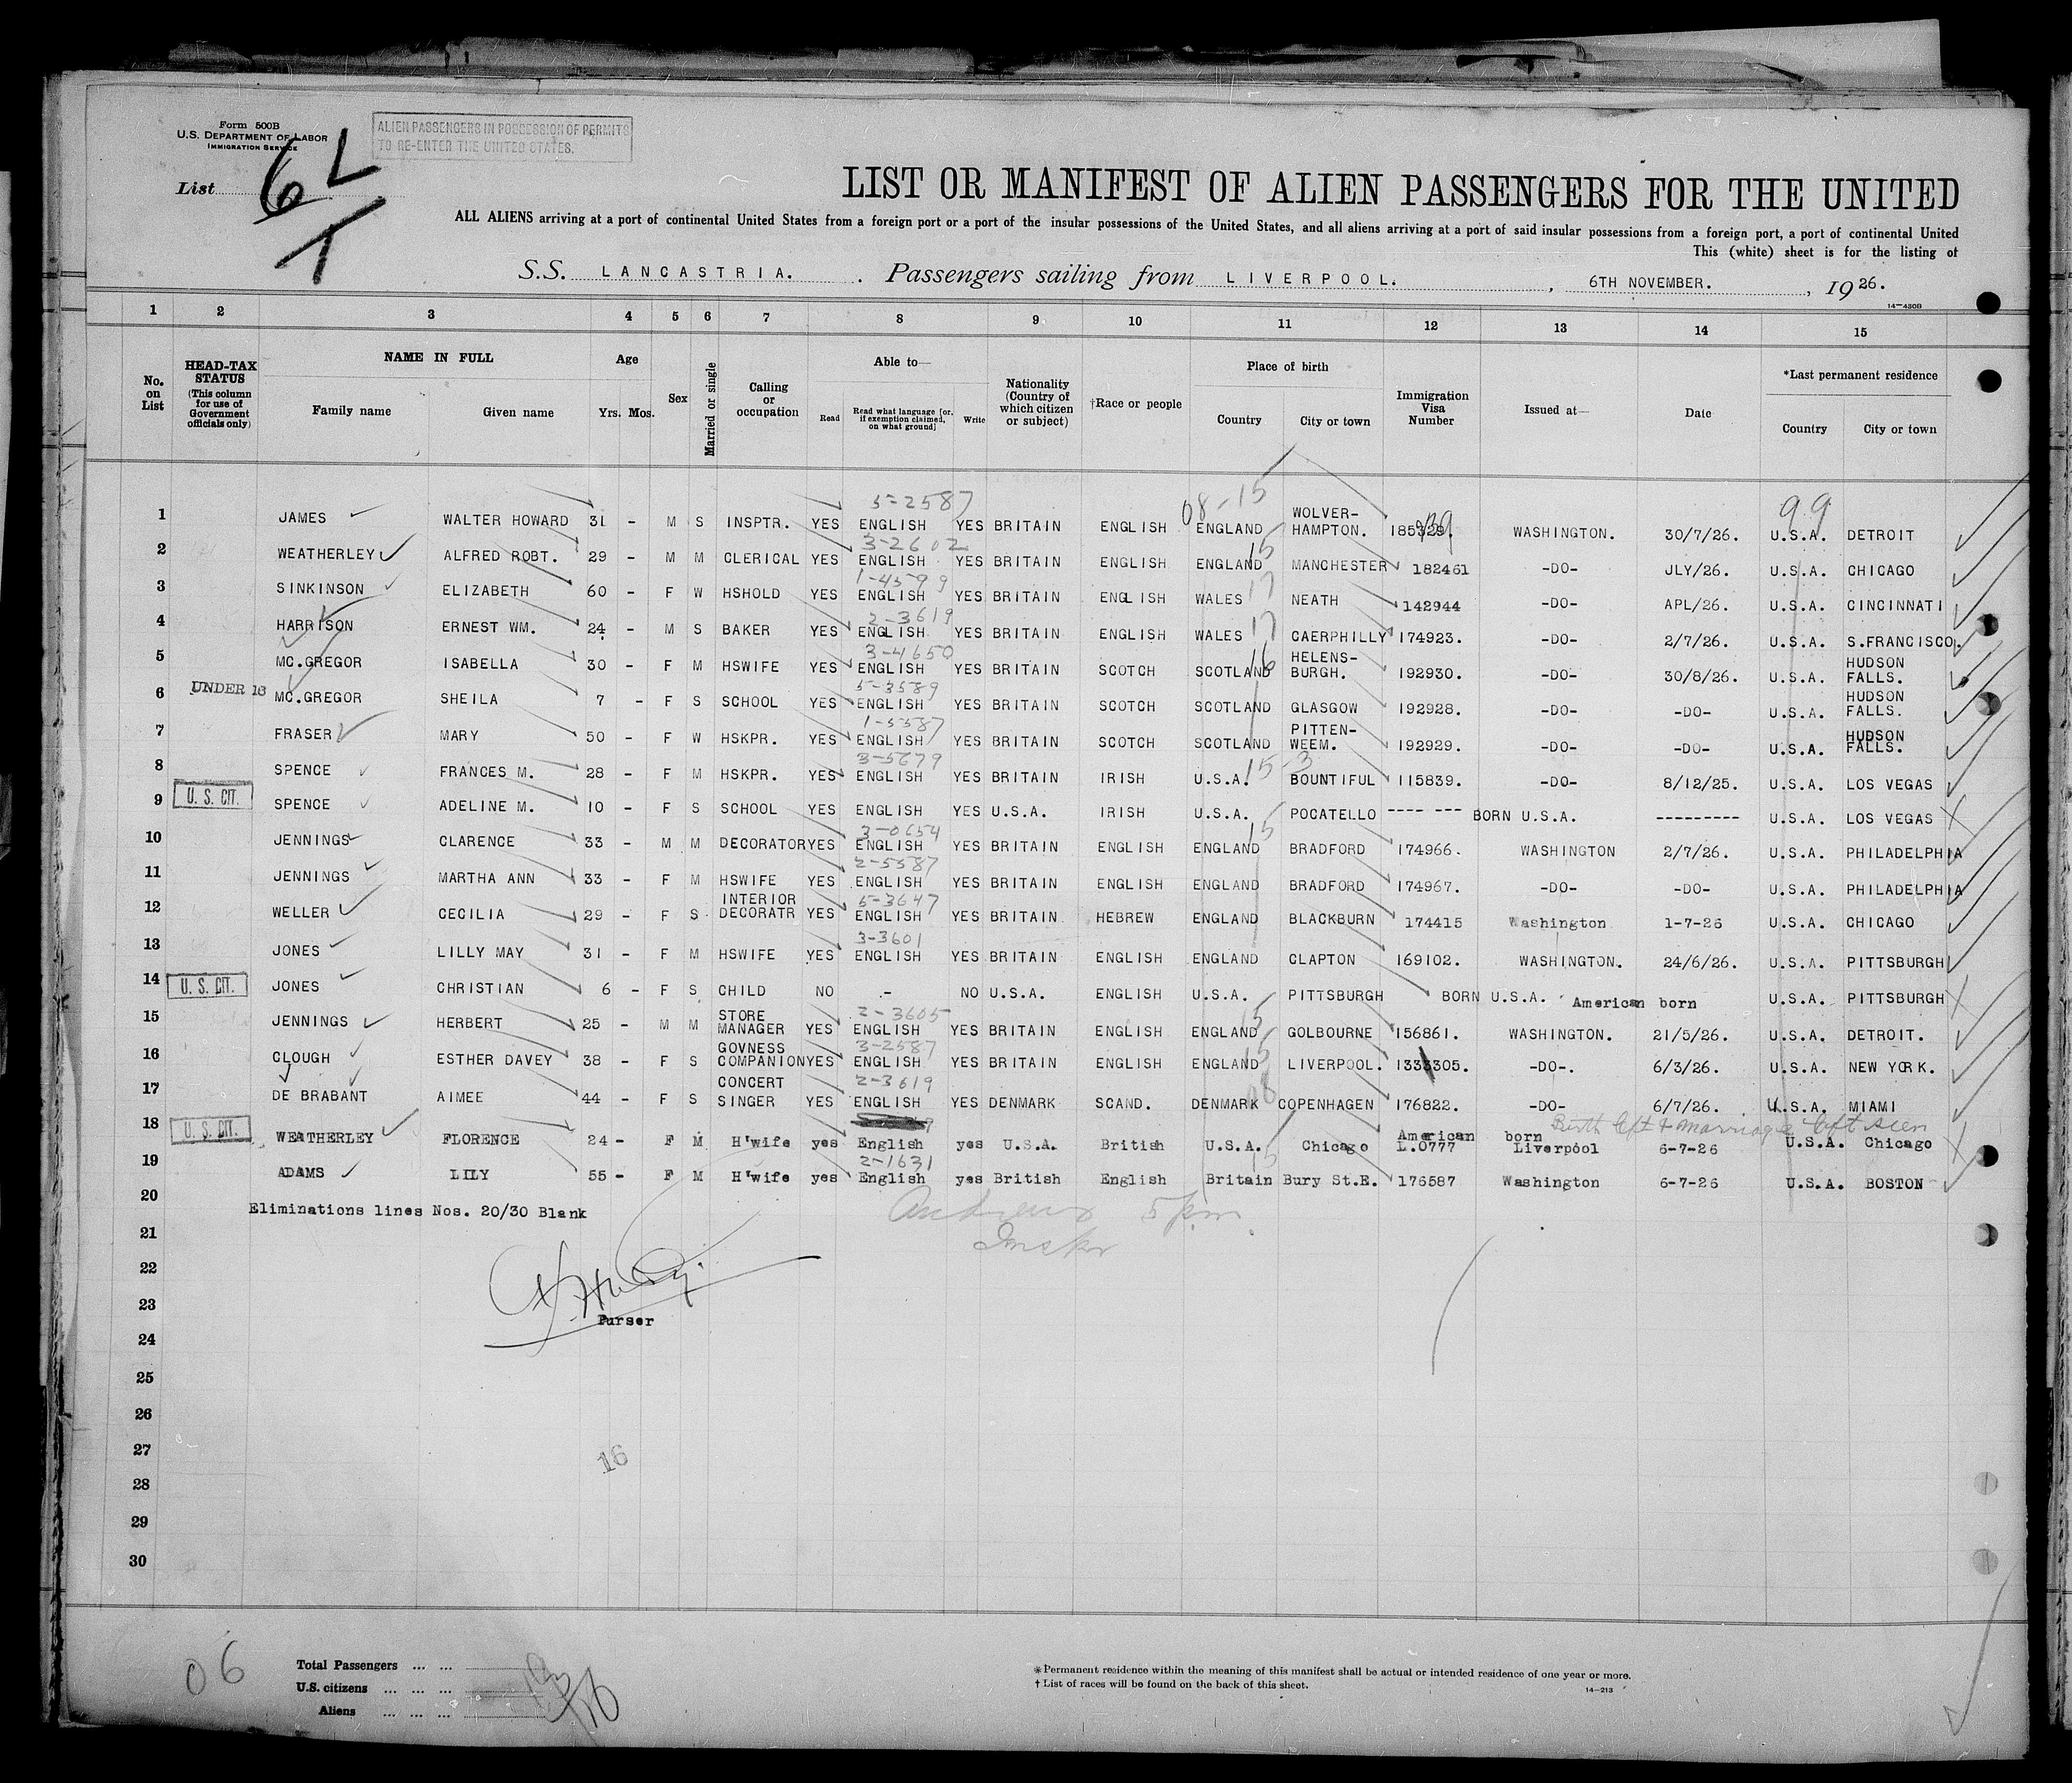 Form 500B
U.S. DEPARTMENT OF LABOR
IMMIGRATION SERVICE
ALIEN PASSENGERS IN POSSESSION OF PERMITS
TO RE-ENTER THE UNITED STATES.
List 6 L
1
LIST OR MANIFEST OF ALIEN PASSENGERS FOR THE UNITED
ALL ALIENS arriving at a port of continental United States from a foreign port or a port of the insular possessions of the United States, and all aliens arriving at a port of said insular possessions from a foreign port, a port of continental United
This (white) sheet is for the listing of
S.S. LANCASTRIA. Passengers sailing from LIVERPOOL. , 6TH NOVEMBER. , 1926.
14—430B
1 2 3 4 5 6 7 8 9 10 11 12 13 14 15
No. on List
HEAD-TAX STATUS (This column for use of Government officials only)
NAME IN FULL
Family name Given name
Age
Yrs. Mos.
Sex
Married or single
Calling or occupation
Able to—
Read Read what language [or, if exemption claimed, on what ground] Write
Nationality (Country of which citizen or subject)
†Race or people
Place of birth
Country City or town
Immigration Visa Number
Issued at—
Date
*Last permanent residence
Country City or town
5-2587 08-15 99
1 JAMES WALTER HOWARD 31 - M S INSPTR. YES ENGLISH YES BRITAIN ENGLISH ENGLAND WOLVER-HAMPTON. 185329. WASHINGTON. 30/7/26. U.S.A. DETROIT
3-2602 15
2 WEATHERLEY ALFRED ROBT. 29 - M M CLERICAL YES ENGLISH YES BRITAIN ENGLISH ENGLAND MANCHESTER 182461 -DO- JLY/26. U.S.A. CHICAGO
1-4599 17
3 SINKINSON ELIZABETH 60 - F W HSHOLD YES ENGLISH YES BRITAIN ENGLISH WALES NEATH 142944 -DO- APL/26. U.S.A. CINCINNATI
2-3619 17
4 HARRISON ERNEST WM. 24 - M S BAKER YES ENGLISH YES BRITAIN ENGLISH WALES CAERPHILLY 174923. -DO- 2/7/26. U.S.A. S.FRANCISCO.
3-4650 16
5 MC.GREGOR ISABELLA 30 - F M HSWIFE YES ENGLISH YES BRITAIN SCOTCH SCOTLAND HELENS-BURGH. 192930. -DO- 30/8/26. U.S.A. HUDSON FALLS.
5-3589
6 UNDER 16 MC.GREGOR SHEILA 7 - F S SCHOOL YES ENGLISH YES BRITAIN SCOTCH SCOTLAND GLASGOW 192928. -DO- -DO- U.S.A. HUDSON FALLS.
1-5587
7 FRASER MARY 50 - F W HSKPR. YES ENGLISH YES BRITAIN SCOTCH SCOTLAND PITTEN-WEEM. 192929. -DO- -DO- U.S.A. HUDSON FALLS.
3-5679 15-3
8 SPENCE FRANCES M. 28 - F M HSKPR. YES ENGLISH YES BRITAIN IRISH U.S.A. BOUNTIFUL 115839. -DO- 8/12/25. U.S.A. LOS VEGAS
9 U. S. CIT. SPENCE ADELINE M. 10 - F S SCHOOL YES ENGLISH YES U.S.A. IRISH U.S.A. POCATELLO ---- --- BORN U.S.A. --------- U.S.A. LOS VEGAS
3-0654 15
10 JENNINGS CLARENCE 33 - M M DECORATOR YES ENGLISH YES BRITAIN ENGLISH ENGLAND BRADFORD 174966. WASHINGTON 2/7/26. U.S.A. PHILADELPHIA
2-5587
11 JENNINGS MARTHA ANN 33 - F M HSWIFE YES ENGLISH YES BRITAIN ENGLISH ENGLAND BRADFORD 174967. -DO- -DO- U.S.A. PHILADELPHIA
5-3647
12 WELLER CECILIA 29 - F S INTERIOR DECORATR YES ENGLISH YES BRITAIN HEBREW ENGLAND BLACKBURN 174415 Washington 1-7-26 U.S.A. CHICAGO
3-3601
13 JONES LILLY MAY 31 - F M HSWIFE YES ENGLISH YES BRITAIN ENGLISH ENGLAND CLAPTON 169102. WASHINGTON. 24/6/26. U.S.A. PITTSBURGH
14 U. S. CIT. JONES CHRISTIAN 6 - F S CHILD NO .- NO U.S.A. ENGLISH U.S.A. PITTSBURGH BORN U.S.A. American born U.S.A. PITTSBURGH
2-3605 15
15 JENNINGS HERBERT 25 - M M STORE MANAGER YES ENGLISH YES BRITAIN ENGLISH ENGLAND GOLBOURNE 156861. WASHINGTON. 21/5/26. U.S.A. DETROIT.
3-2587 15
16 CLOUGH ESTHER DAVEY 38 - F S GOVNESS COMPANION YES ENGLISH YES BRITAIN ENGLISH ENGLAND LIVERPOOL. 1333305. -DO-. 6/3/26. U.S.A. NEW YORK.
2-3619 08
17 DE BRABANT AIMEE 44 - F S CONCERT SINGER YES ENGLISH YES DENMARK SCAND. DENMARK COPENHAGEN 176822. -DO- 6/7/26. U.S.A. MIAMI
Birth Cft & Marriage Cft seen
18 U. S. CIT. WEATHERLEY FLORENCE 24 - F M H'wife yes English yes U.S.A. British U.S.A. Chicago American born L.0777 Liverpool 6-7-26 U.S.A. Chicago
2-1631 15
19 ADAMS LILY 55 - F M H'wife yes English yes British English Britain Bury St.E. 176587 Washington 6-7-26 U.S.A. BOSTON
20 Eliminations lines Nos. 20/30 Blank
Andrews 5 pm
21 Inspr
22
23
Purser
24
25
26
27
16
28
29
30
06
Total Passengers ... ...
U.S. citizens ... ... ...
Aliens ... ... ...
* Permanent residence within the meaning of this manifest shall be actual or intended residence of one year or more.
† List of races will be found on the back of this sheet.
14—213